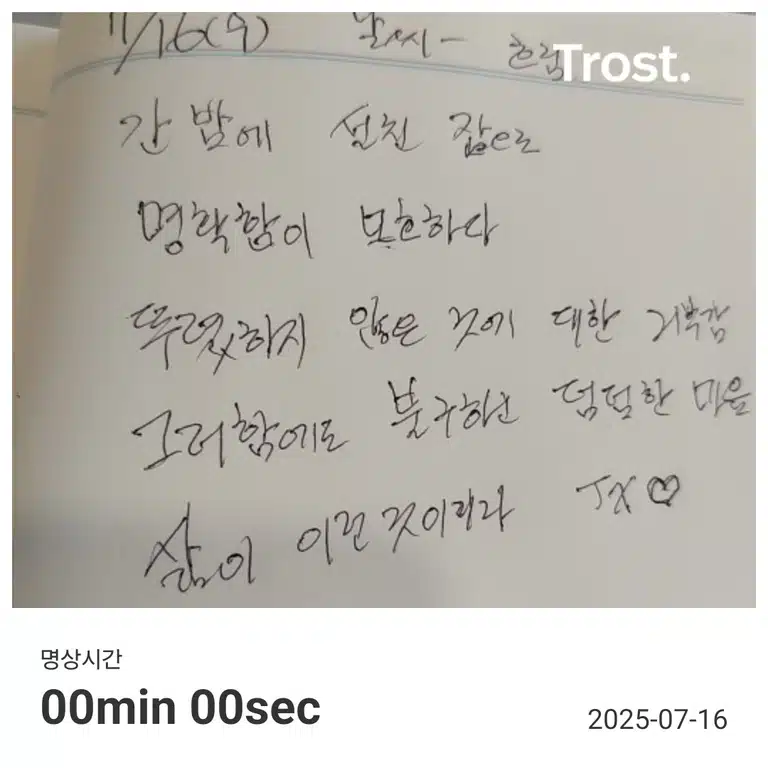 7/16(수) 날씨- 흐림
Trost.
간 밤에 설친 잠으로
명확함이 모호하다
뚜렷하지 않은 것에 대한 거부감
그러함에도 불구하고 덤덤한 마음
삶이 이런 것이리라 TX♡
명상시간
00min 00sec
2025-07-16